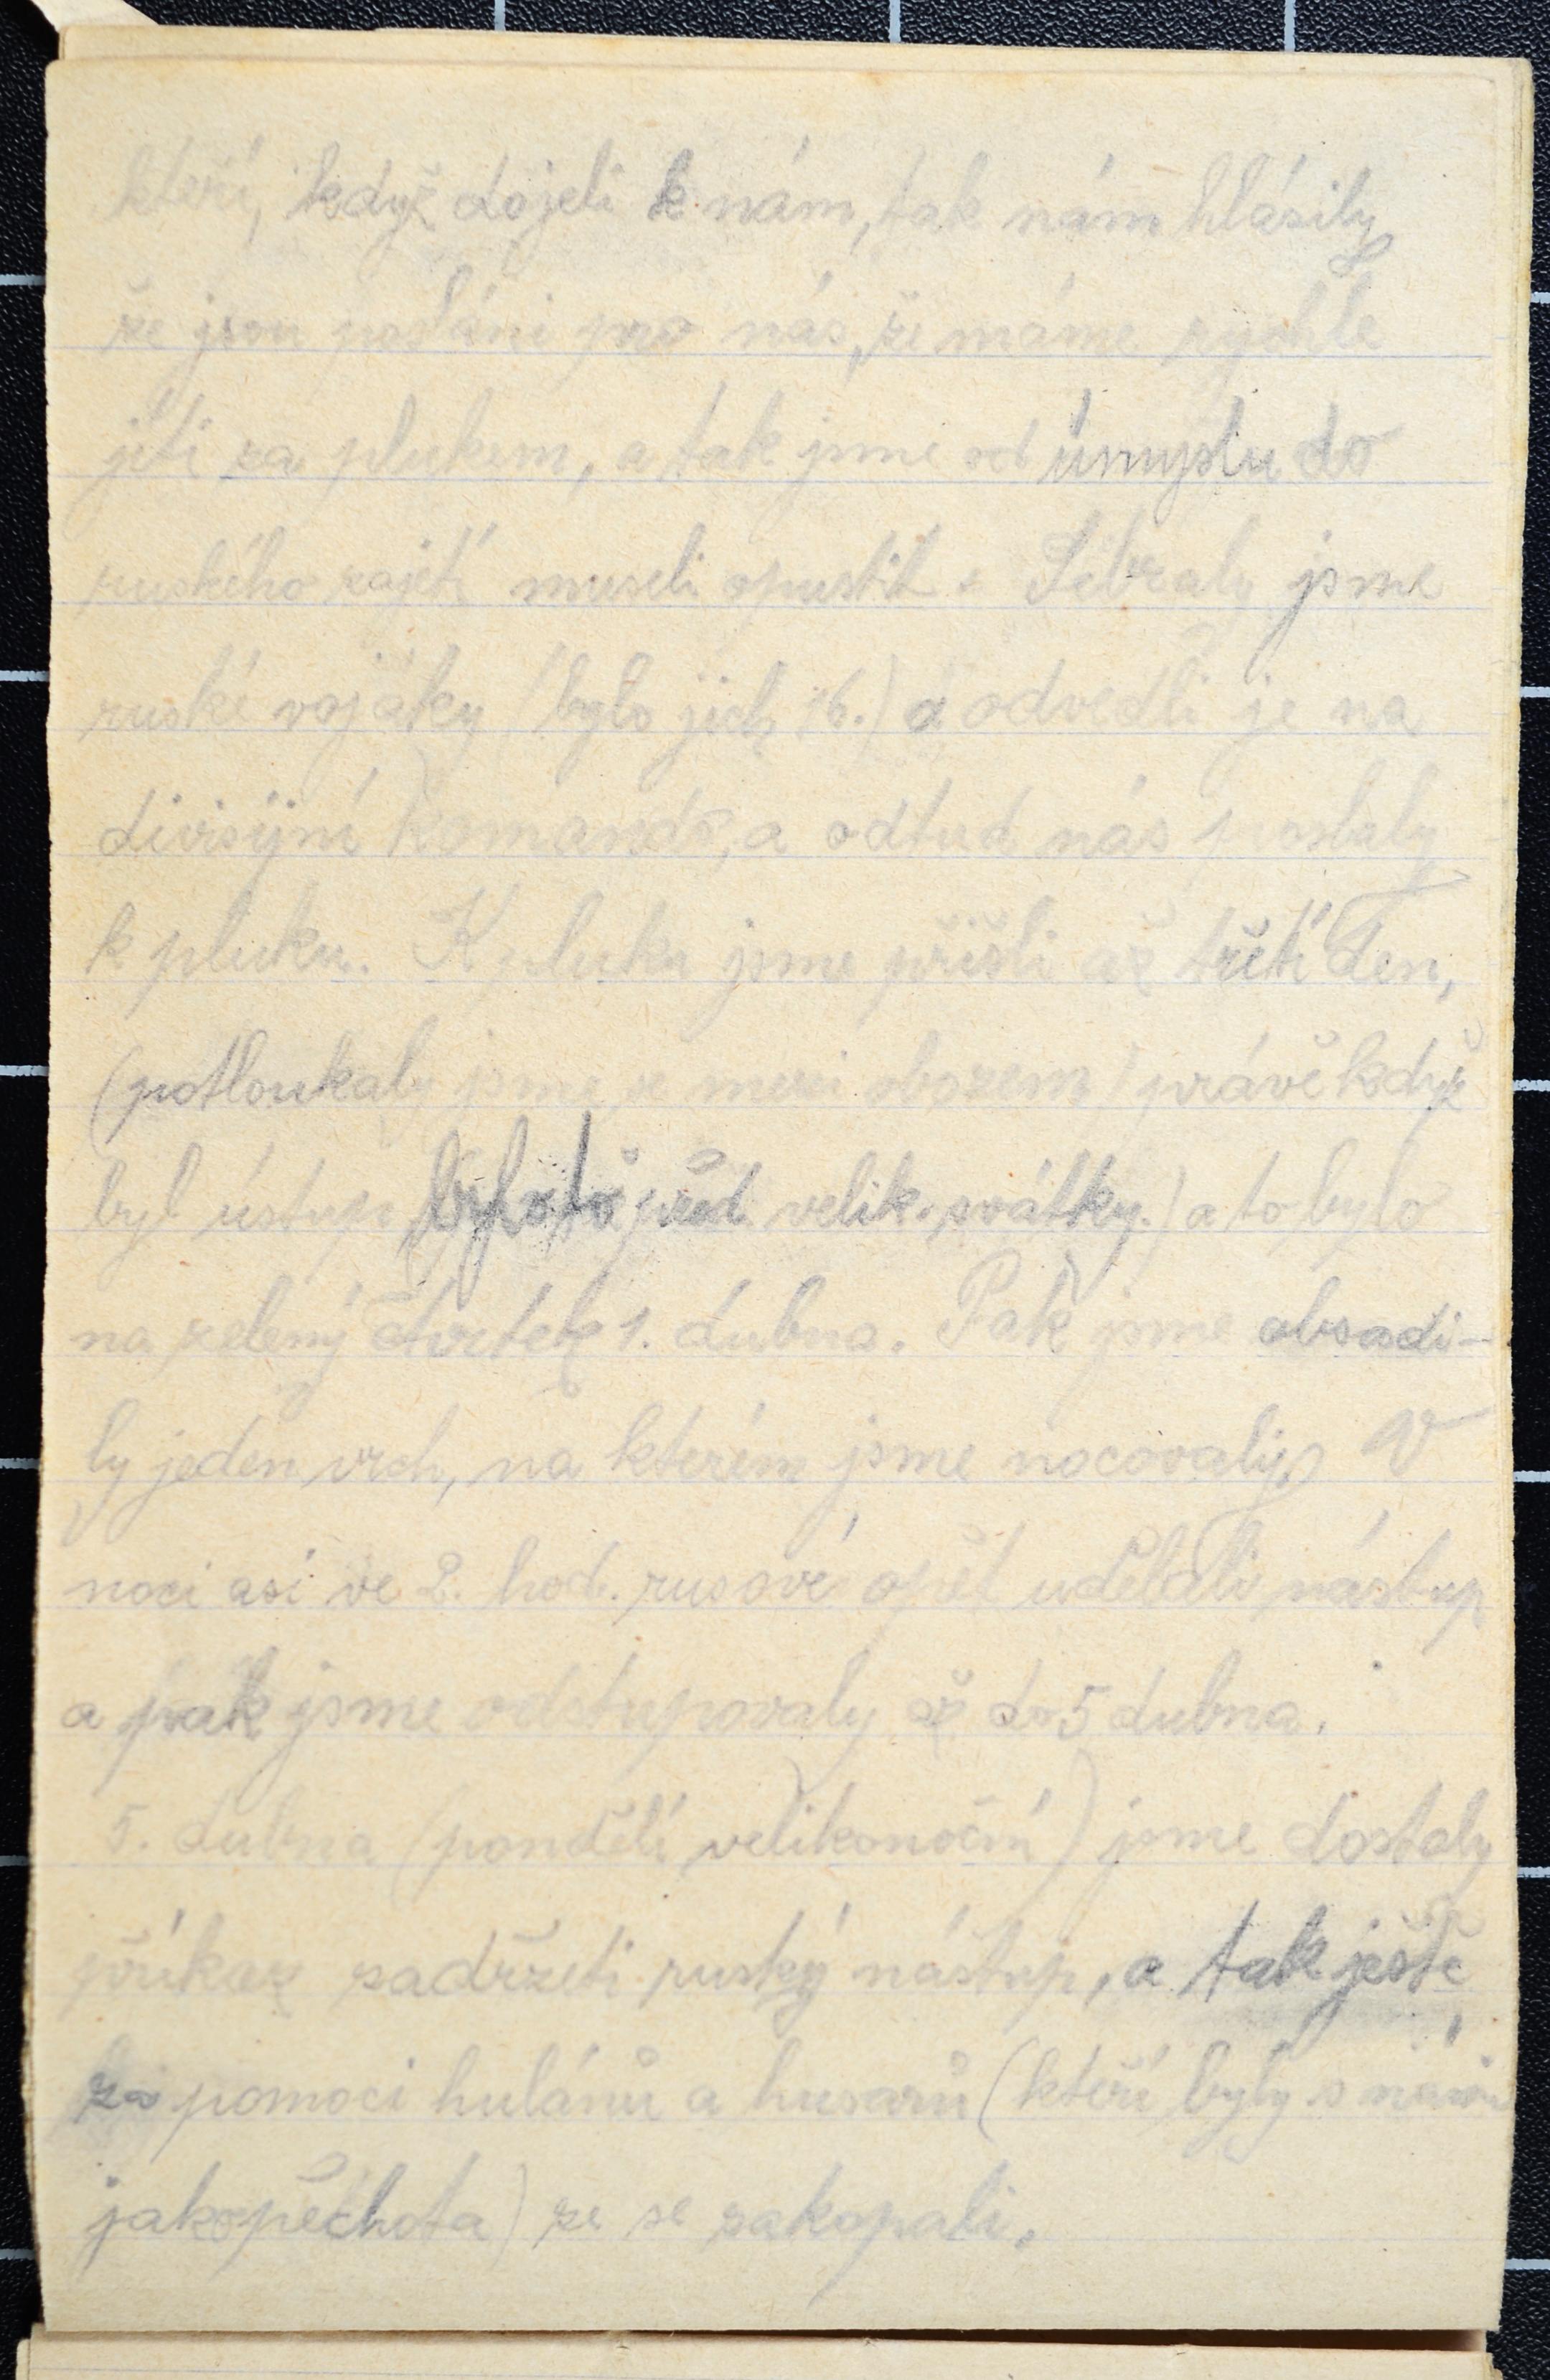 kteří, když dojeli k nám, tak nám hlásily
že jsou posláni pro nás, že máme rychle
jeti za plukem, a tak jsme od úmyslu do
ruského zajetí museli opustit. Sebraly jsme
ruské vojáky (bylo jich 16.) a odvedli je na
divisijní komando, a odtud nás poslaly
k pluku. K pluku jsme přišli až třetí den,
(potloukaly jsme se mezi obozem) právě když
byl ústup (bylo to před velik. svátky.) a to bylo
na zelený čtvrtek 1. dubna. Pak jsme obsadi-
ly jeden vrch, na kterém jsme nocovaly. V
noci asi ve 2. hod. rusové opět udělali nástup
a pak jsme odstupovaly až do 5 dubna.
5. dubna (pondělí velikonoční) jsme dostaly
příkaz zadržeti ruský nástup, a tak ještě
za pomoci hulánů a husarů (kteří byly s námi
jako pěchota) že se zakopali.